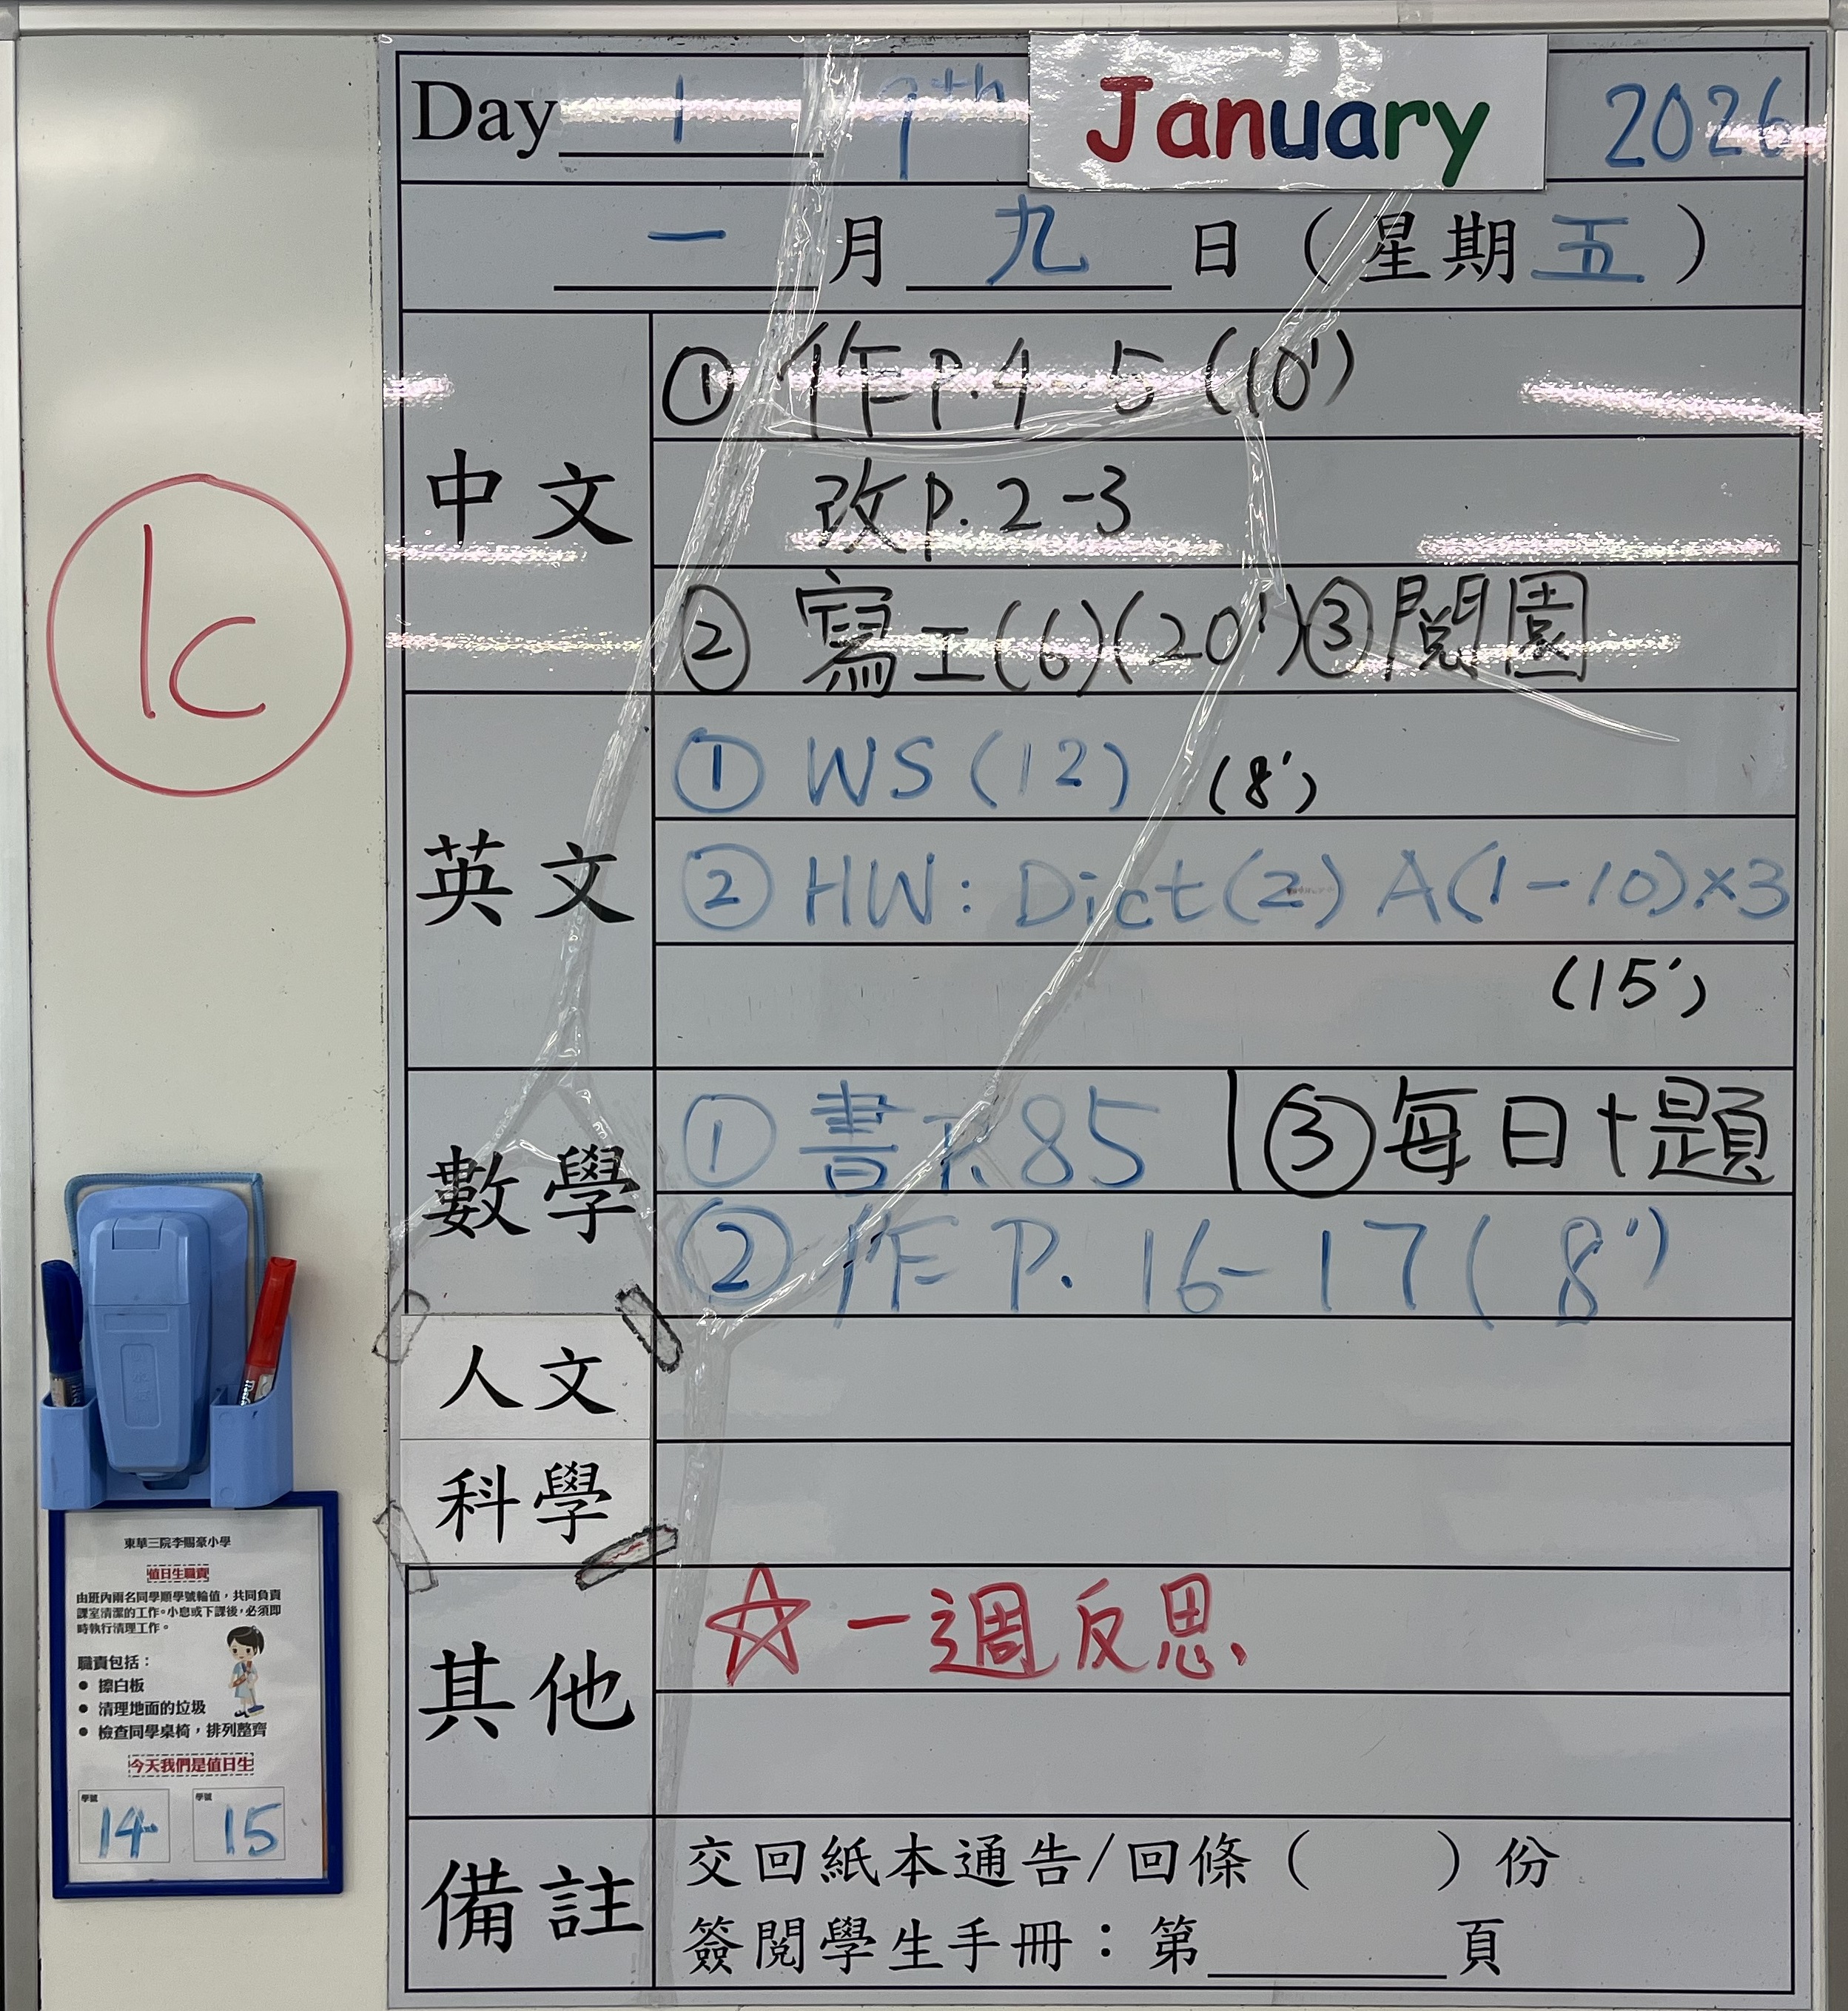 Day 1 9th January 2026
一 月 九 日 ( 星期 五 )
中文
① 作 P.4-5 (10')
改 P.2-3
② 寫工(6)(20') ③ 閱園
英文
① WS (12) (8')
② HW: Dict(2) A(1-10)×3
(15')
數學
① 書 P.85 | ③ 每日十題
② 作 P. 16-17 (8')
人文
科學
其他
☆ 一週反思
備註
交回紙本通告/回條 ( ) 份
簽閱學生手冊：第 頁
1c
東華三院李賜豪小學
值日生職責
由班內兩名同學順學號輪值，共同負責
課室清潔的工作。小息或下課後，必須即
時執行清理工作。
職責包括：
● 擦白板
● 清理地面的垃圾
● 檢查同學桌椅，排列整齊
今天我們是值日生
學號 14 學號 15